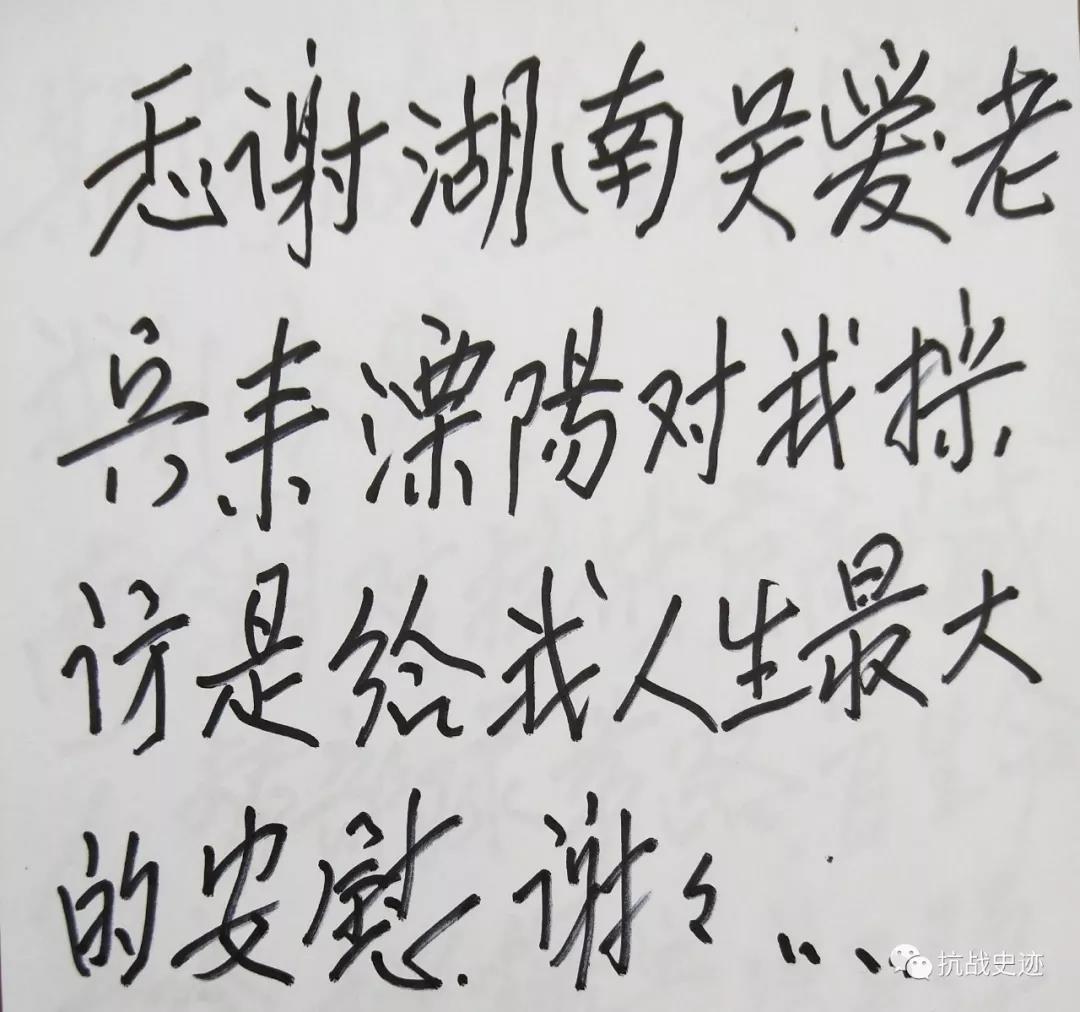 感谢湖南关爱老
兵来溧陽对我採
访是给我人生最大
的安慰.谢々......
抗战史迹